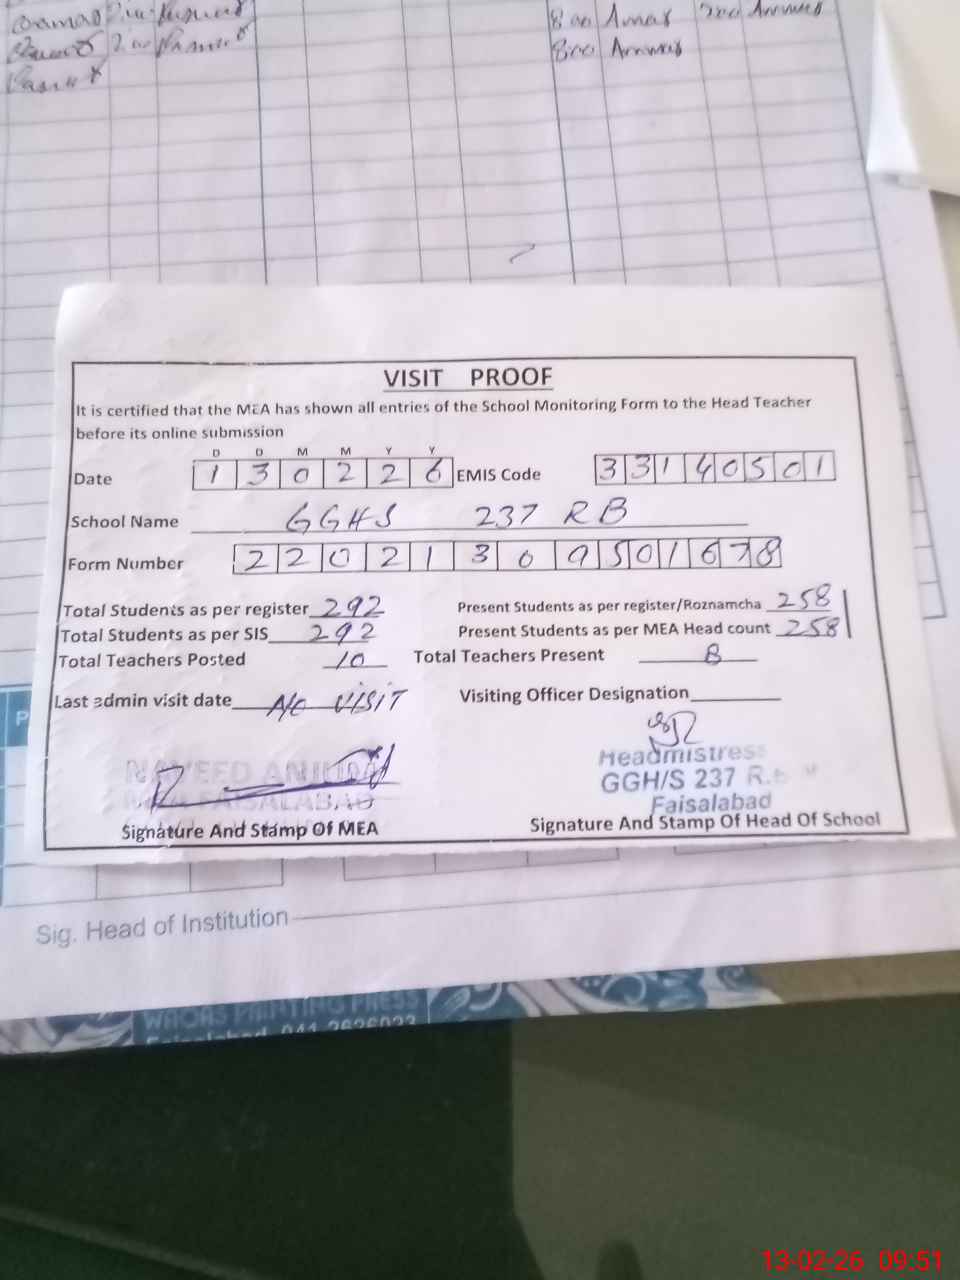 800 Amas
800
VISIT PROOF
It is certified that the MEA has shown all entries of the School Monitoring Form to the Head Teacher
before its online submission
D D M M Y Y
Date 1 3 0 2 2 6 EMIS Code 3 3 1 4 0 5 0 1
School Name GGHS 237 RB
Form Number 2 2 0 2 1 3 0 9 5 0 1 6 7 8
Total Students as per register 292 Present Students as per register/Roznamcha 258
Total Students as per SIS 292 Present Students as per MEA Head count 258
Total Teachers Posted 10 Total Teachers Present 8
Last admin visit date NO VISIT Visiting Officer Designation
Headmistress
GGH/S 237 R.B
Faisalabad
NAVEED
FAISALABAD
Signature And Stamp Of MEA Signature And Stamp Of Head Of School
Sig. Head of Institution
WAQAS PRINTING PRESS
Faisalabad. 041-2626023
13-02-26 09:51